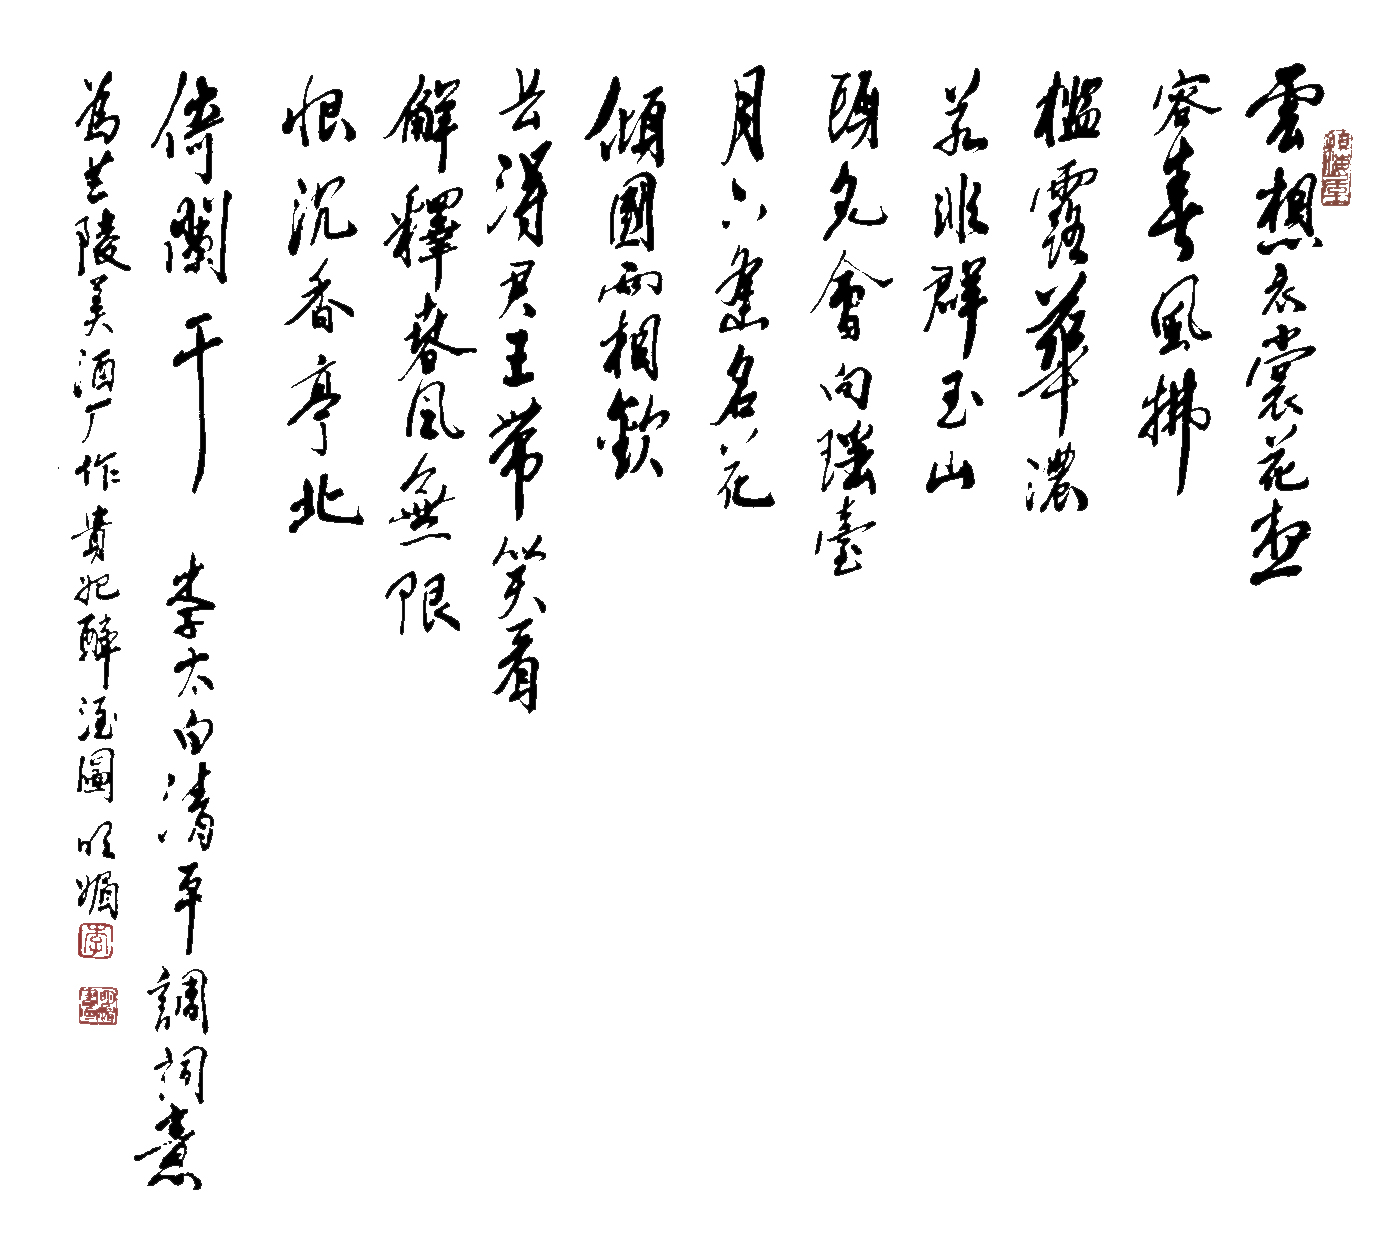 雲想衣裳花想
容春風拂
檻露華濃
若非群玉山
頭見會向瑶臺
月下逢名花
傾國兩相歡
長得君王帶笑看
解釋春風無限
恨沉香亭北
倚闌干 李太白清平調詞意
為兰陵美酒厂作貴妃醉酒圖 明媚